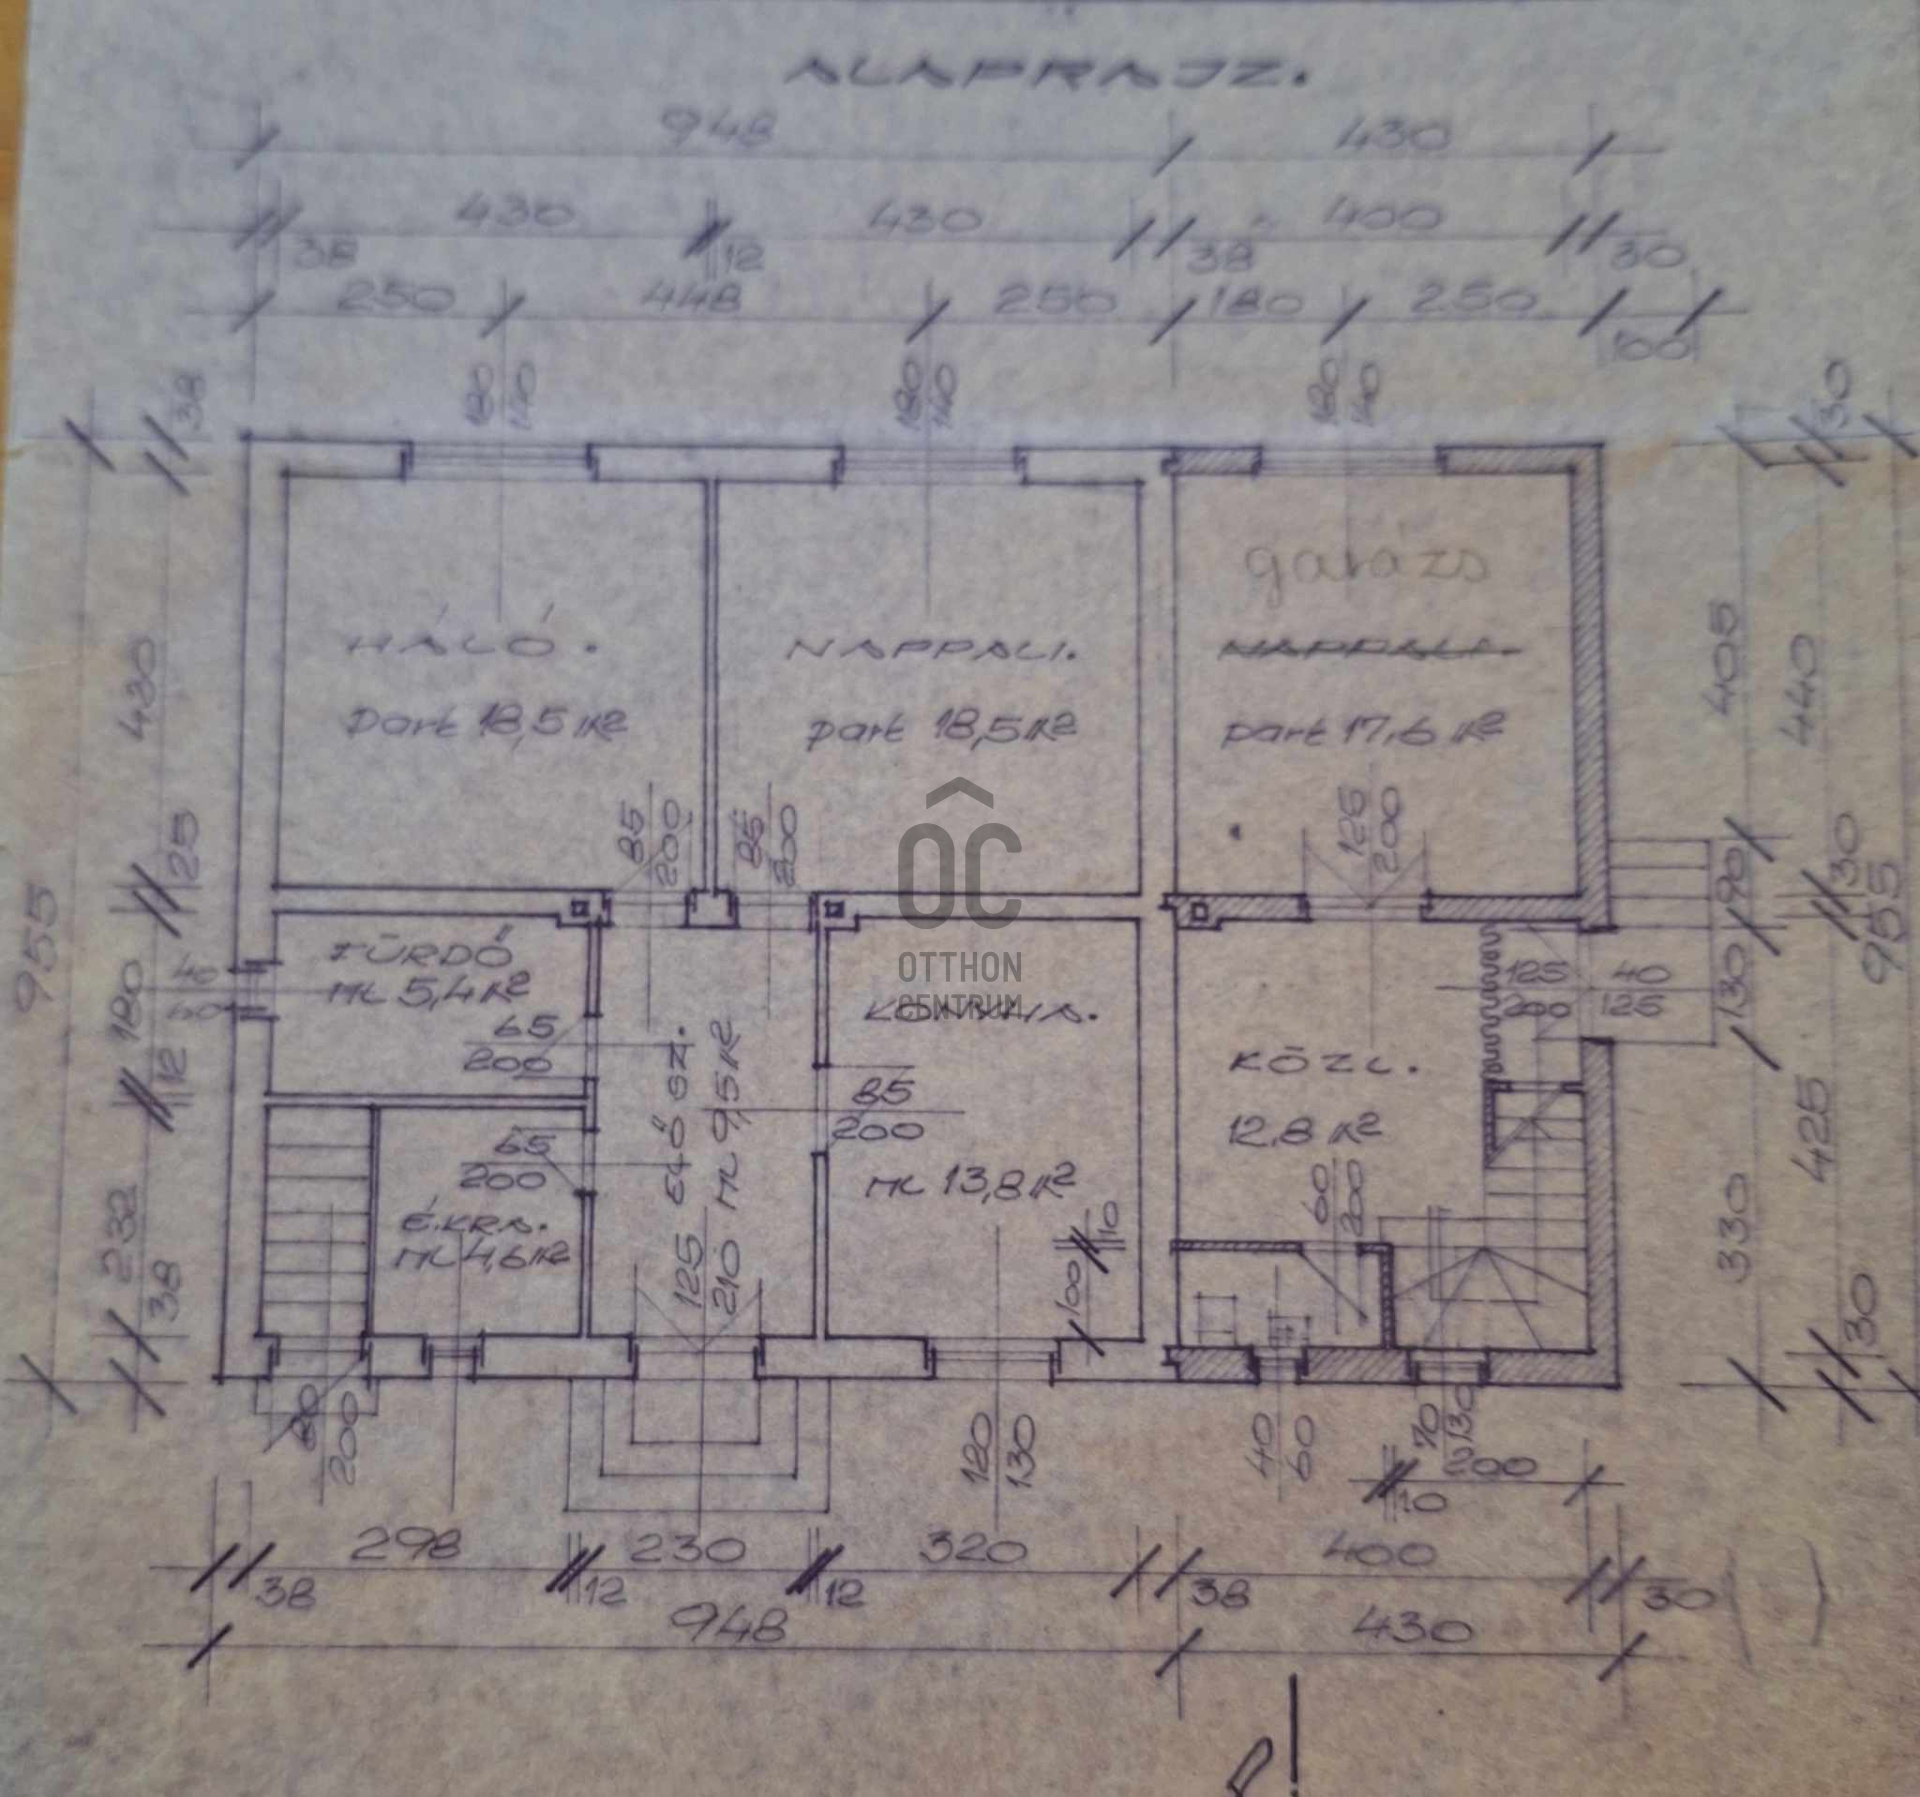 ALAPRAJZ.
948 430
430 430 400
38 12 38 30
250 448 250 180 250
100
180 140 180 140 180 140
38 30
garázs
HÁLÓ. NAPPALI. NAPPALI.
part 18,5 m² part 18,5 m² part 17,6 m²
430 405 440
85 200 85 200 125 200
25 90 30
955 955
OC
OTTHON
CENTRUM
FÜRDŐ
ML 5,4 m²
40
60
180 12
125 200 40 125
130
65
200
ELŐSZ.
ML 9,5 m²
KONYHA.
85
200
ML 13,8 m²
KÖZL.
12,8 m²
60 200
425
65
200
É.KRA.
ML 4,6 m²
125 210
100 10
232 38
330 30
80 200
120 130
40 60
70 130
200
10
298 230 320 400
38 12 12 38 30
948 430